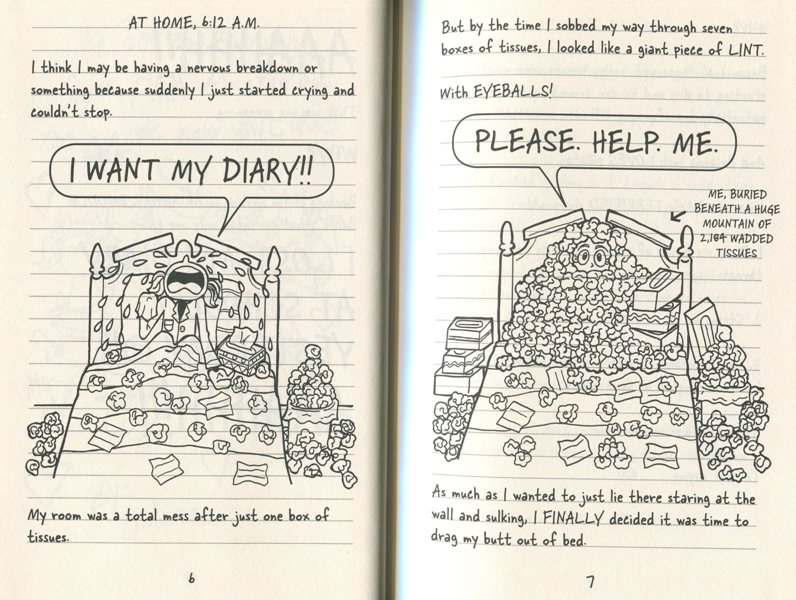 AT HOME, 6:12 A.M.
I think I may be having a nervous breakdown or
something because suddenly I just started crying and
couldn't stop.
I WANT MY DIARY!!
My room was a total mess after just one box of
tissues.
6
But by the time I sobbed my way through seven
boxes of tissues, I looked like a giant piece of LINT.
With EYEBALLS!
PLEASE. HELP. ME.
ME, BURIED
BENEATH A HUGE
MOUNTAIN OF
2,184 WADDED
TISSUES
As much as I wanted to just lie there staring at the
wall and sulking, I FINALLY decided it was time to
drag my butt out of bed.
7